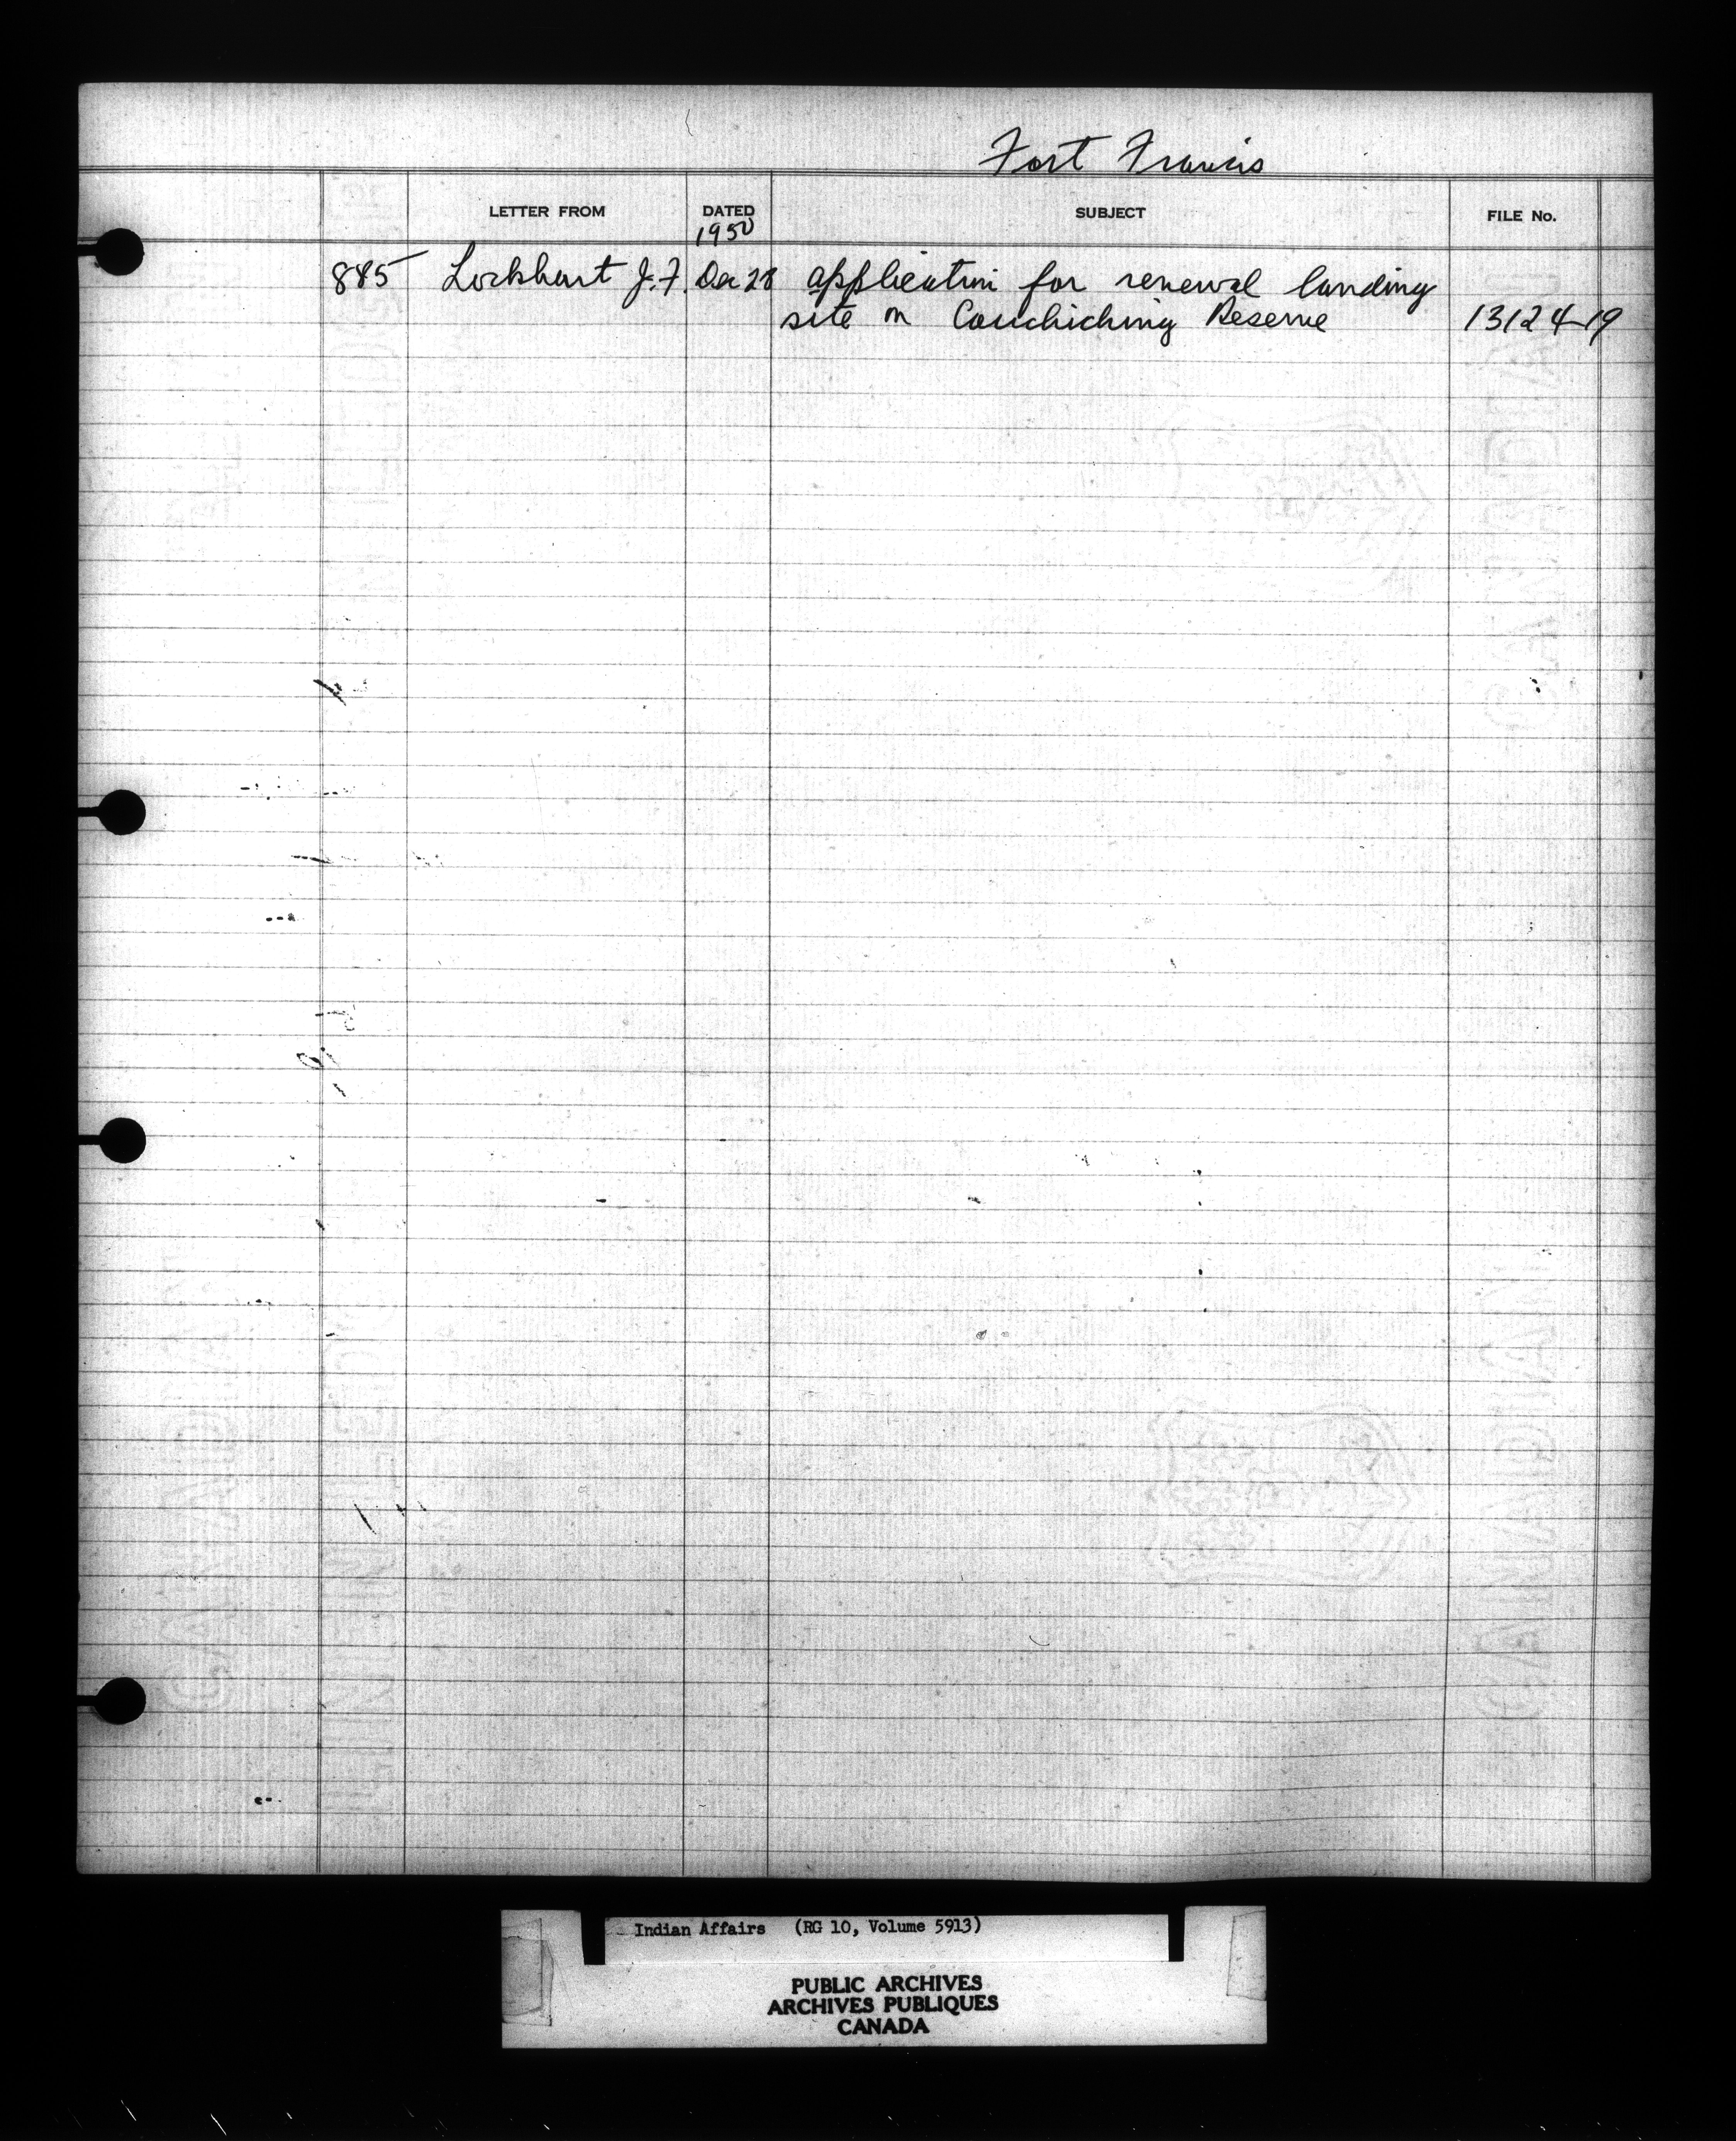 Fort Francis
LETTER FROM DATED SUBJECT FILE No.
1950
885 Lockhart J.F. Dec 28 application for renewal landing
site on Couchiching Reserve 13124-19
Indian Affairs (RG 10, Volume 5913)
PUBLIC ARCHIVES
ARCHIVES PUBLIQUES
CANADA